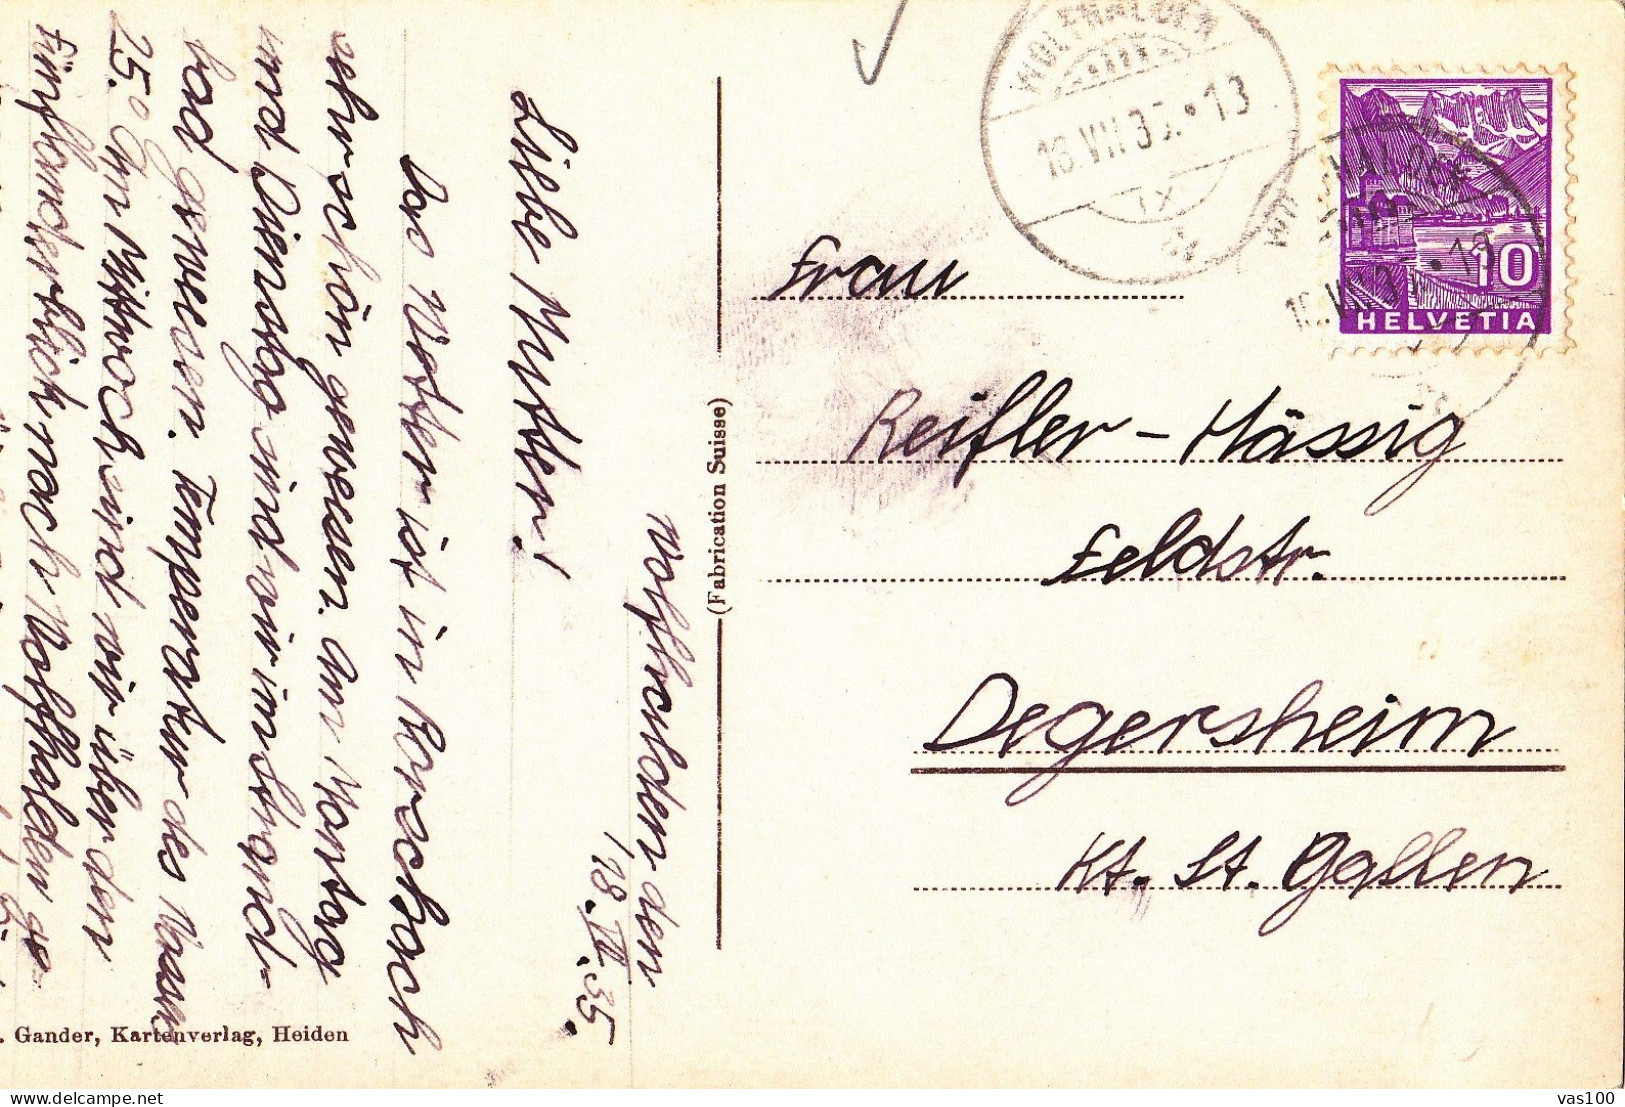 Wolfhalden den
18. VII. 35.
Liebe Mutter!
Das Wetter ist in Rorschach
sehr schön gewesen. Am Montag
und Dienstag sind wir im Strand-
bad gewesen. Temperatur des Wassers
25.° Am Mittwoch sind wir über den
Fünfländerblick nach Wolfhalden ge-
. Gander, Kartenverlag, Heiden
(Fabrication Suisse)
WOLFHALDEN
18.VII.35.·13
IX
10
HELVETIA
Frau
Reifler-Hässig
Feldstr.
Degersheim
Kt. St. Gallen
vas100